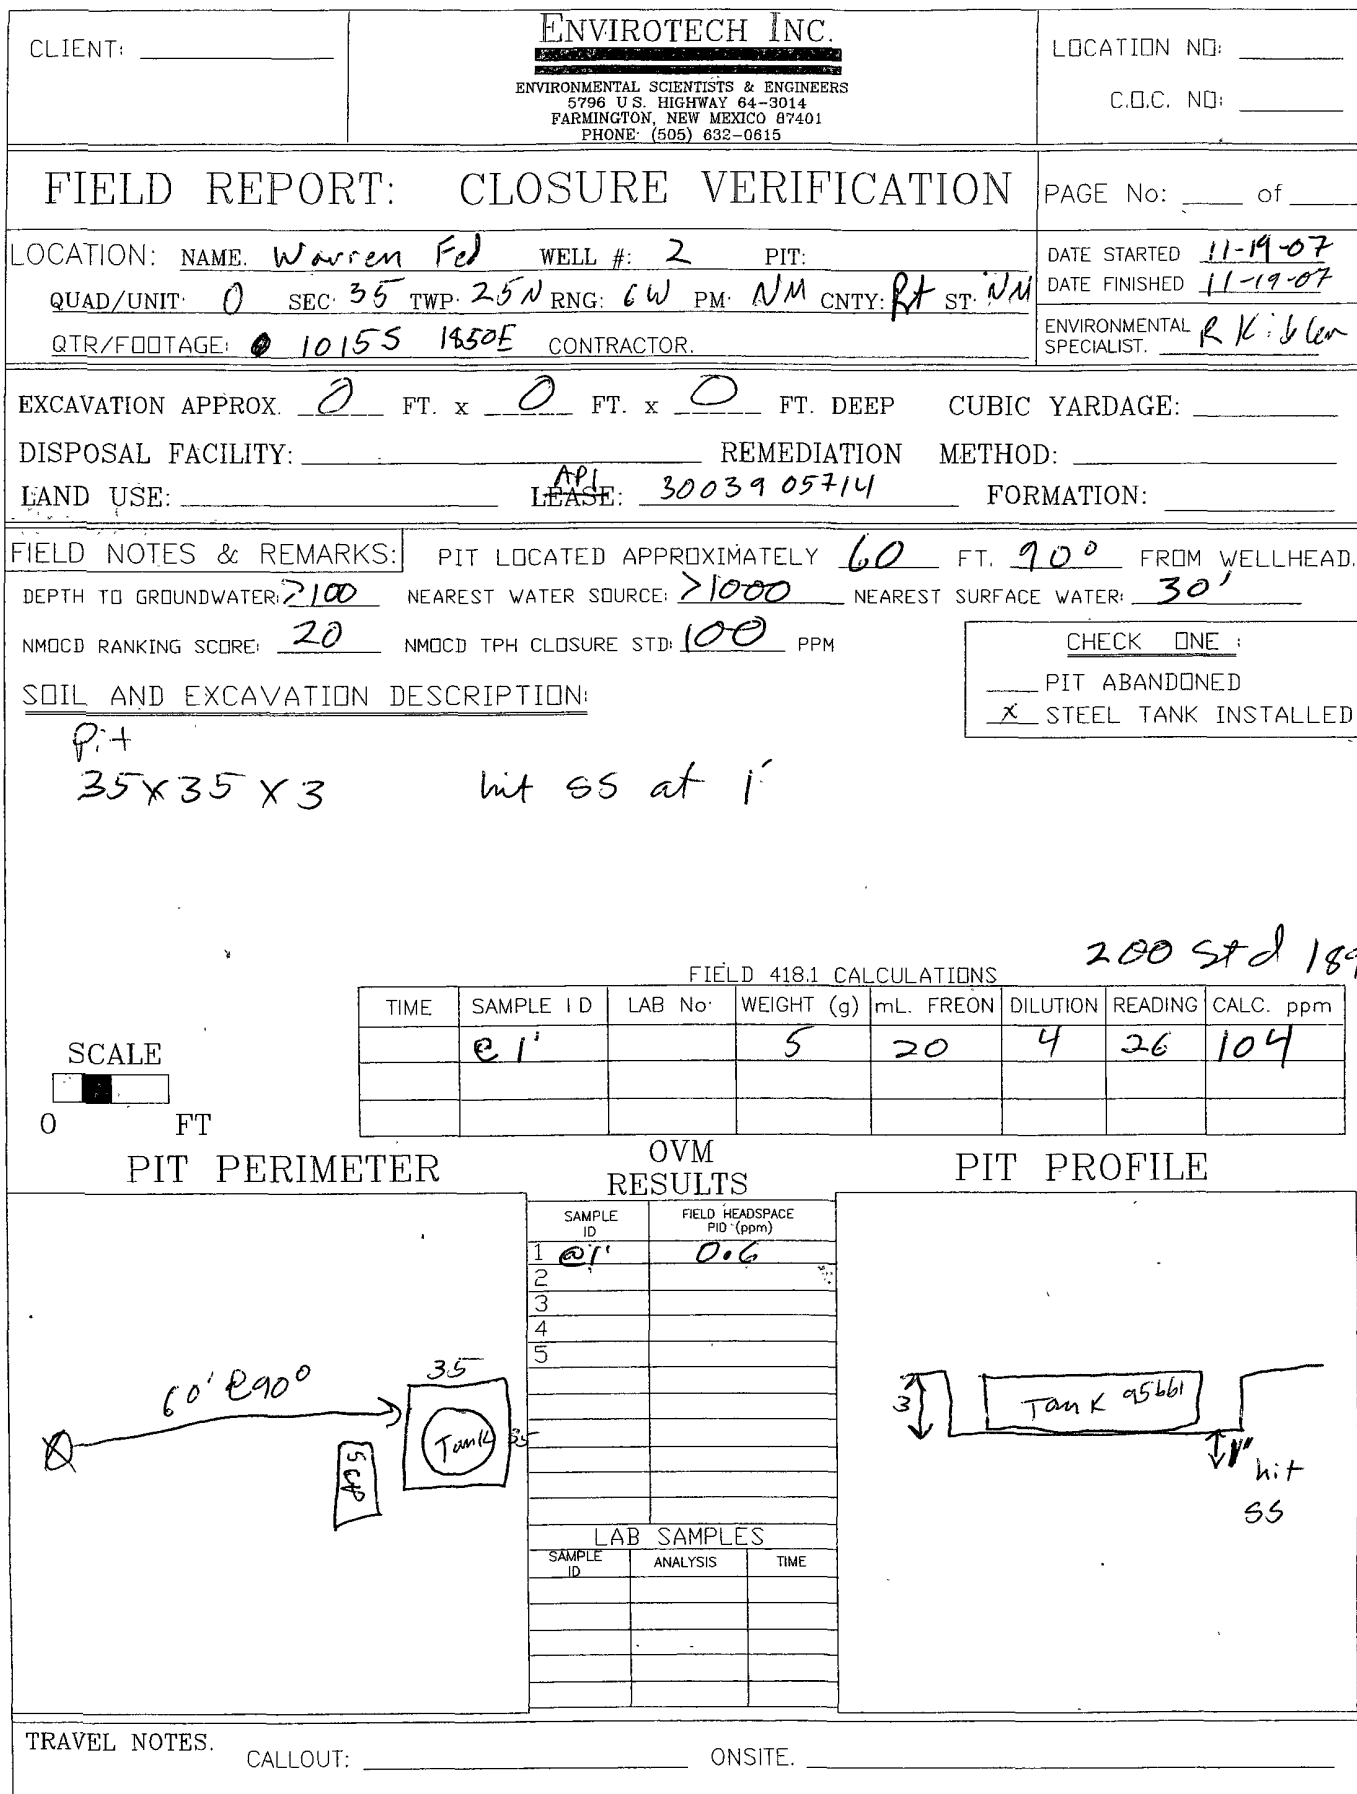 CLIENT:
ENVIROTECH INC.
ENVIRONMENTAL SCIENTISTS & ENGINEERS
5796 U S. HIGHWAY 64-3014
FARMINGTON, NEW MEXICO 87401
PHONE: (505) 632-0615
LOCATION NO:
C.O.C. NO:
FIELD REPORT: CLOSURE VERIFICATION
PAGE No: of
LOCATION: NAME. Warren Fed WELL #: 2 PIT:
QUAD/UNIT: O SEC: 35 TWP: 25N RNG: 6W PM: NM CNTY: RA ST: NM
QTR/FOOTAGE: 1015S 1850E CONTRACTOR.
DATE STARTED 11-19-07
DATE FINISHED 11-19-07
ENVIRONMENTAL
SPECIALIST. R
EXCAVATION APPROX. 0 FT. x 0 FT. x 0 FT. DEEP CUBIC YARDAGE:
DISPOSAL FACILITY: REMEDIATION METHOD:
API
LAND USE: LEASE: 30039 05714 FORMATION:
FIELD NOTES & REMARKS: PIT LOCATED APPROXIMATELY 60 FT. 90° FROM WELLHEAD.
DEPTH TO GROUNDWATER: >100 NEAREST WATER SOURCE: >1000 NEAREST SURFACE WATER: 30'
NMOCD RANKING SCORE: 20 NMOCD TPH CLOSURE STD: 100 PPM
CHECK ONE :
PIT ABANDONED
X STEEL TANK INSTALLED
SOIL AND EXCAVATION DESCRIPTION:
Pit
35 x 35 x 3 hit SS at 1'
200 Std 189
FIELD 418.1 CALCULATIONS
TIME SAMPLE I D LAB No: WEIGHT (g) mL. FREON DILUTION READING CALC. ppm
@ 1' 5 20 4 26 104
SCALE
0 FT
PIT PERIMETER
OVM
RESULTS
PIT PROFILE
SAMPLE
ID
FIELD HEADSPACE
PID (ppm)
1 @1' 0.6
2
3
4
5
60' @90°
35
Tank
35
3
Tank 95661
1'
hit
SS
LAB SAMPLES
SAMPLE
ID
ANALYSIS TIME
TRAVEL NOTES.
CALLOUT: ONSITE.